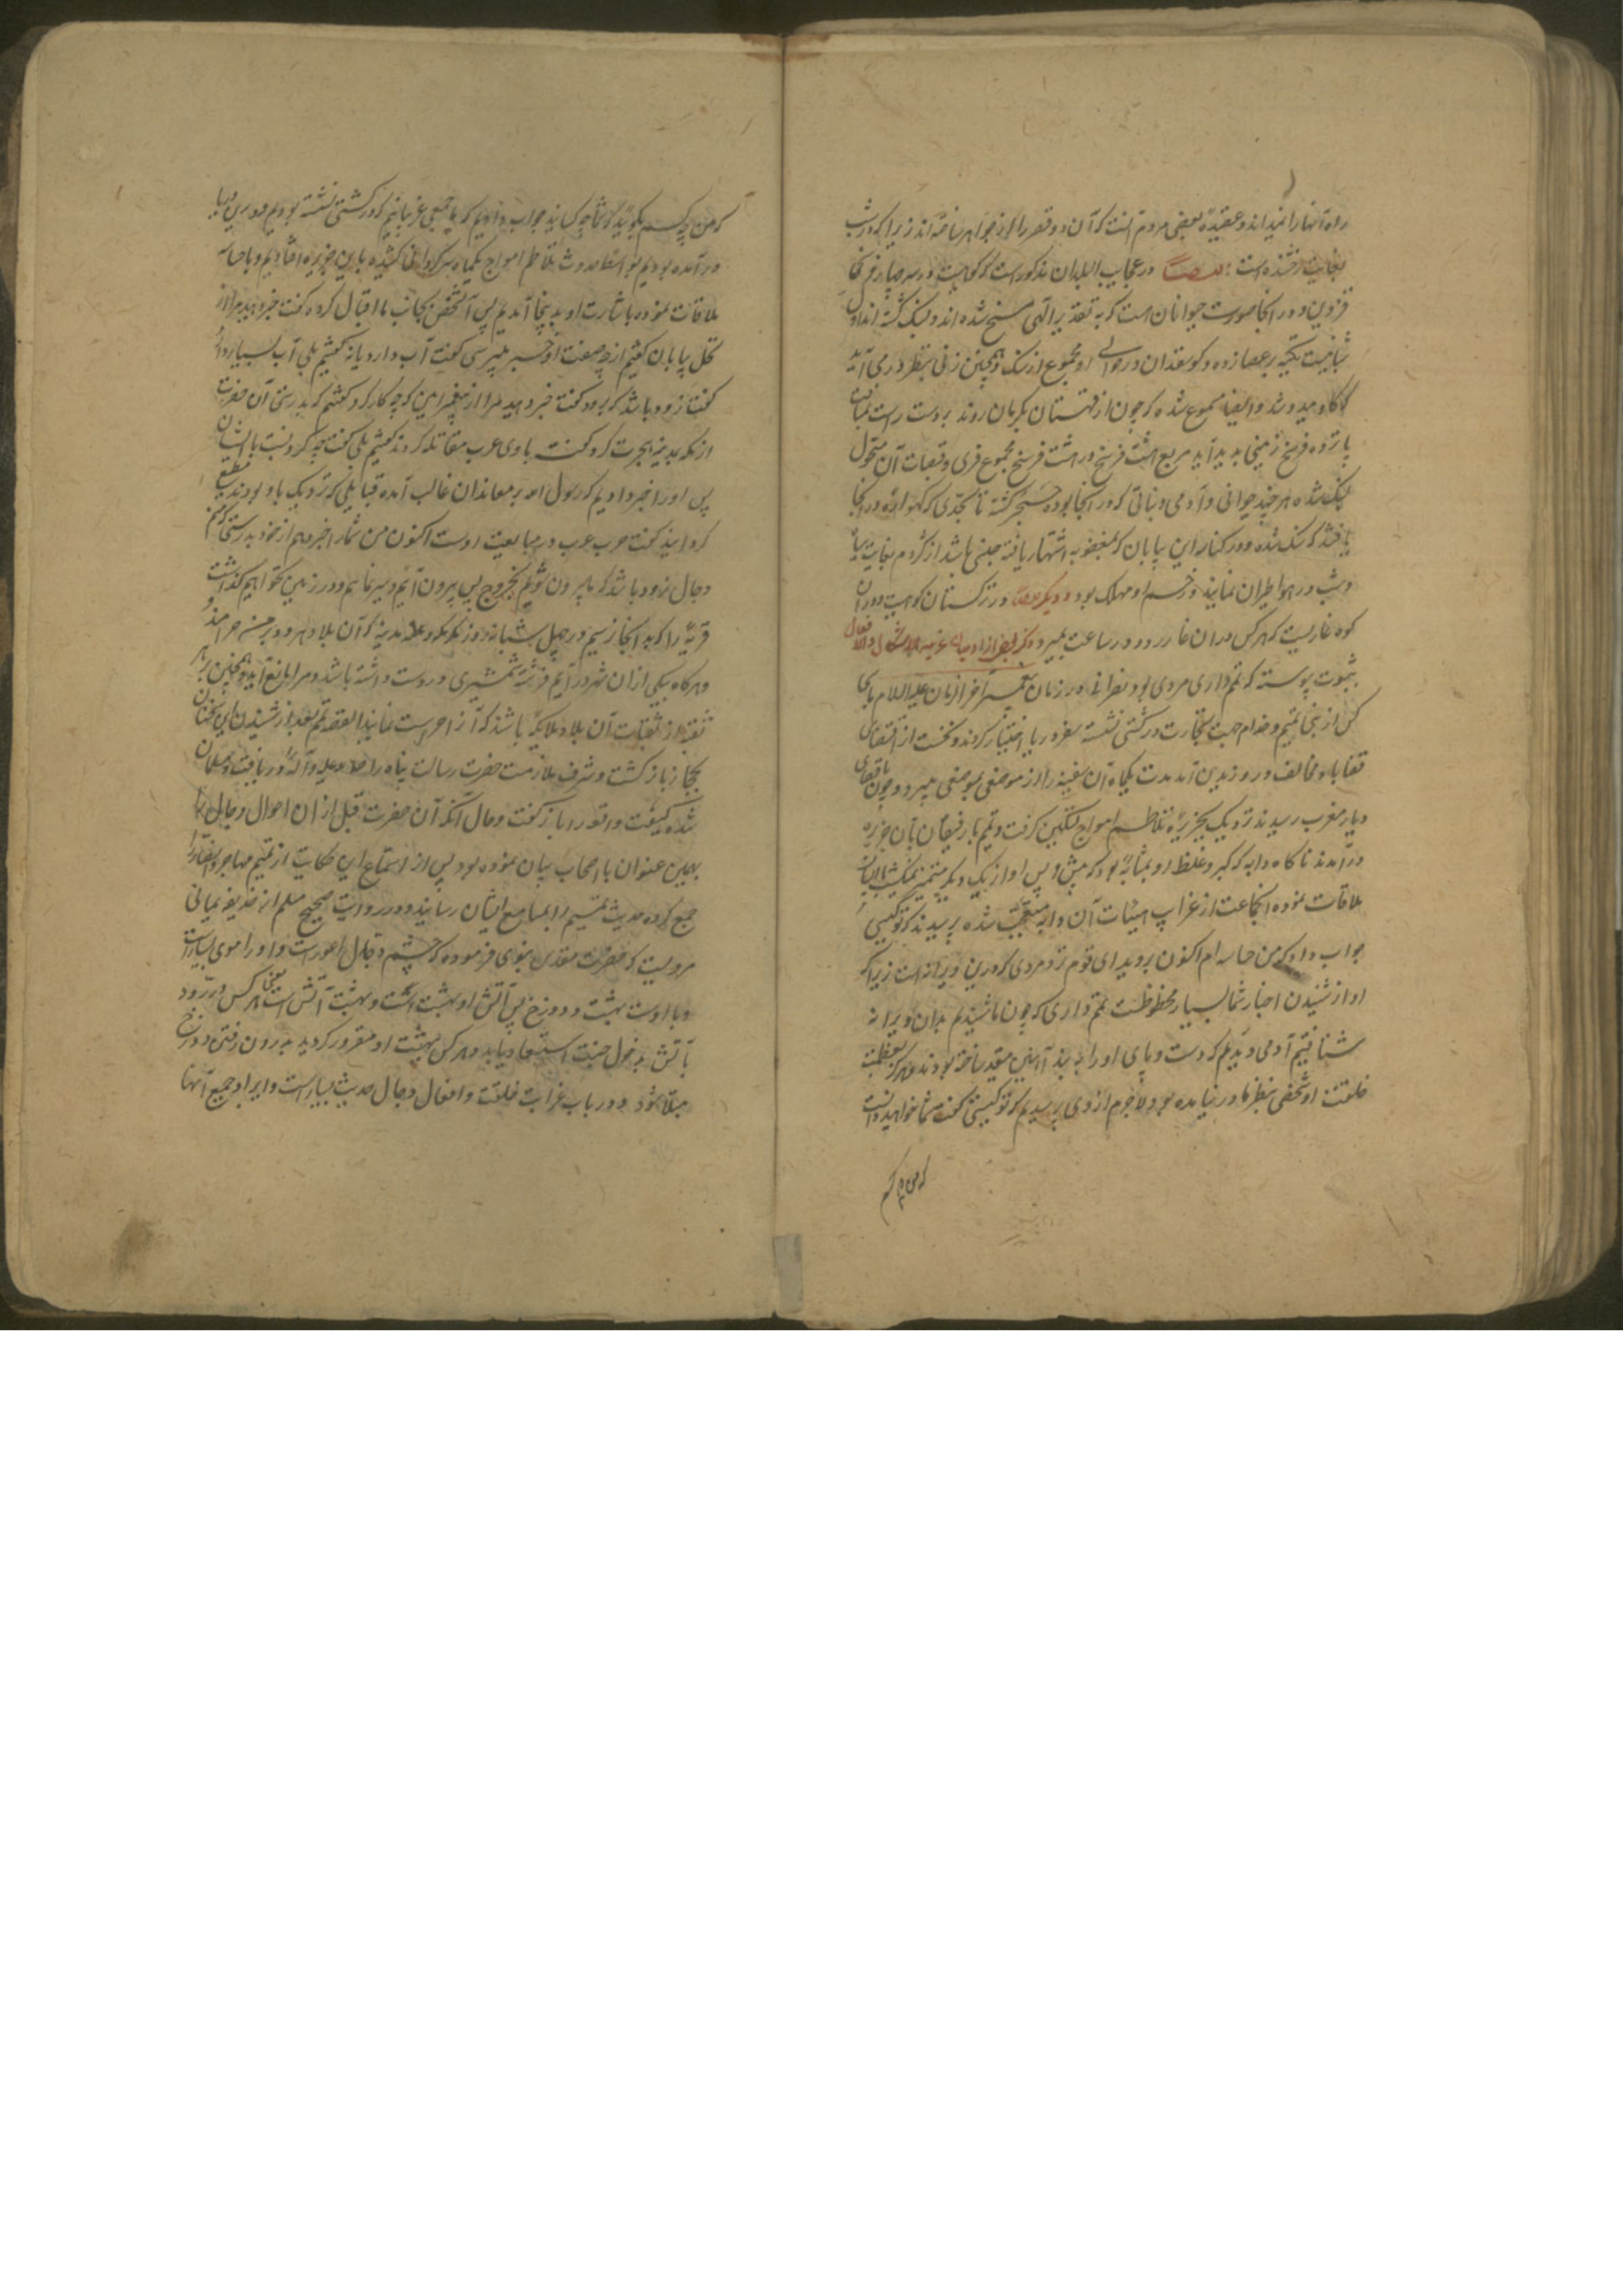 راه آنها را نمیداند و عقیده بعضی مردم آنست که آن دو قصر را از جواهر ساخته اند زیرا که در شب
بغایت رخشنده است در عجایب البلدان مذکور است که کوهیست در سه چهار فرسخی
قزوین و در انجا صورت حیوانان است که به تقدیر الهی مسخ شده اند و سنگ گشته اند اول
شبانیست تکیه بر عصا زده و گوسفندان در حوالی او مجموع از سنگ و همچنین زنی بنظر در می آید
که گاو میدوشد و ایضا مسموع شده که چون از قهستان بکرمان روند بر دست راست بمسافت
پانزده فرسخ زمینی بدید آید مربع هشت فرسخ در هشت فرسخ مجموع قری و قصبات آن متحول
بسنگ شده هر چند حیوانی و آدمی و نباتی که در انجا بوده متحجر گشته تا بحدی که گهواره در انجا
یافتند که سنگ شده و در کنار این بیابان که بمغضوبه اشتهار یافته جنبی باشد از کژدم بغایت سیاه
و شب در هوا طیران نمایند و زخم او مهلک بود و دیگر در ترکستان کوهیست و در ان
کوه غاریست که هر کس در ان غار رود در ساعت بمیرد ذکر بعضی از غریب الاشکال و الافعال
بثبوت پیوسته که تمیم داری مردی بود نصرانی در زمان پیغمبر آخر الزمان علیه السلام با سی
کس از بنی تمیم و خدام جهت تجارت در کشتی نشسته سفر دریا اختیار کردند و نخست از اقتضای
قضا باد مخالف در وزیدن آمد مدت یکماه آن سفینه را از موضعی بموضعی میبرد و چون باقصای
دیار مغرب رسیدند نزدیک بجزیره تلاطم امواج تسکین گرفت و تمیم با رفیقان بآن جزیره
در آمدند ناگاه دابه که کبر و غلظ او بمثابه بود که پیش و پس او از یک دیگر متمیز نمیگشت با ایشان
ملاقات نموده انجماعت از غرایب هیئات آن دابه متعجب شده پرسیدند که تو کیستی
جواب داد که من جساسه ام اکنون بروید ای قوم نزد مردی که درین ویرانه است زیرا که
او از شنیدن اخبار شما بسیار محظوظست تمیم داری که چون ما شنیدیم بدان ویرانه
شتافتیم آدمی دیدیم که دست و پای او را به بند آهنین مقید ساخته بودند و هرگز بعظمت
خلقت او شخصی بنظر ما در نیامده بود لاجرم از وی پرسیدیم که تو کیستی گفت شما خواهید دانست
که من چه کسم
که من چه کسم بگویید که شما چه کسانید جواب دادیم که ما جمعی عربانیم که در کشتی نشسته بودیم و درین دریا
در آمده بودیم بواسطه حدوث تلاطم امواج یکماه سرگردانی کشیده باین جزیره افتادیم و با جساسه
ملاقات نموده باشارت او بدینجا آمدیم پس آنشخص بجانب ما اقبال کرده گفت خبر دهید مرا از
نخل بیابان گفتیم از چه صفت او خبر میپرسی گفت آب دارد یا نه گفتیم بلی آب بسیار دارد
گفت زود باشد که برود گفت خبر دهید مرا از پیغمبر امین که چه کار کرد گفتیم که بدرستی آن حضرت
از مکه بمدینه هجرت کرد گفت با وی عرب مقاتله کردند گفتیم بلی گفت چه کرد نسبت با ایشان
پس او را خبر دادیم که رسول الله بر معاندان غالب آمده قبایلی که نزدیک باو بودند مطیع
گردانید گفت عرب در مبایعت اوست اکنون من شما را خبر دهم از خود بدرستی که من
دجال ام زود باشد که بیرون شوم بخروج پس بیرون آیم و سیر نمایم و در زمین نخواهیم گذاشت
قریه را که بدانجا نرسیم در چهل شبانه روز مگر مکه و مدینه که آن بلاد هر دو بر من حرام اند
و هر گاه بیکی از ان شهر در آیم فرشته شمشیری در دست داشته باشد و مرا مانع آید و همچنین بر هر
نقبه از نقبات آن بلاد ملایکه باشند که آنرا حراست نمایند القصه تمیم بعد از شنیدن این سخنان
بحجاز بازگشت و شرف ملازمت حضرت رسالت پناه را صلی الله علیه و آله دریافت و مسلمان
شده کیفیت واقعه را باز گفت و حال آنکه آن حضرت قبل از ان احوال دجال را
بهمین عنوان با اصحاب بیان نموده بود پس از استماع این حکایت از تمیم مهاجر و انصار را
جمع کرده حدیث تمیم را بمسامع ایشان رسانید و در روایت صحیح مسلم از حذیفه یمانی
مرویست که حضرت مقدس نبوی فرموده که چشم دجال اعورست و او را موی بسیارست
و با اوست بهشت و دوزخ پس آتش او بهشت است و بهشت آتش است یعنی هر کس در رود
بآتش بدخول جنت استسعاد یابد و هر کس بهشت او مغرور گردید بدرون رفتن دوزخ
مبتلا شود و در باب غرابت خلقت و افعال دجال حدیث بسیار است و ایراد جمیع آنها